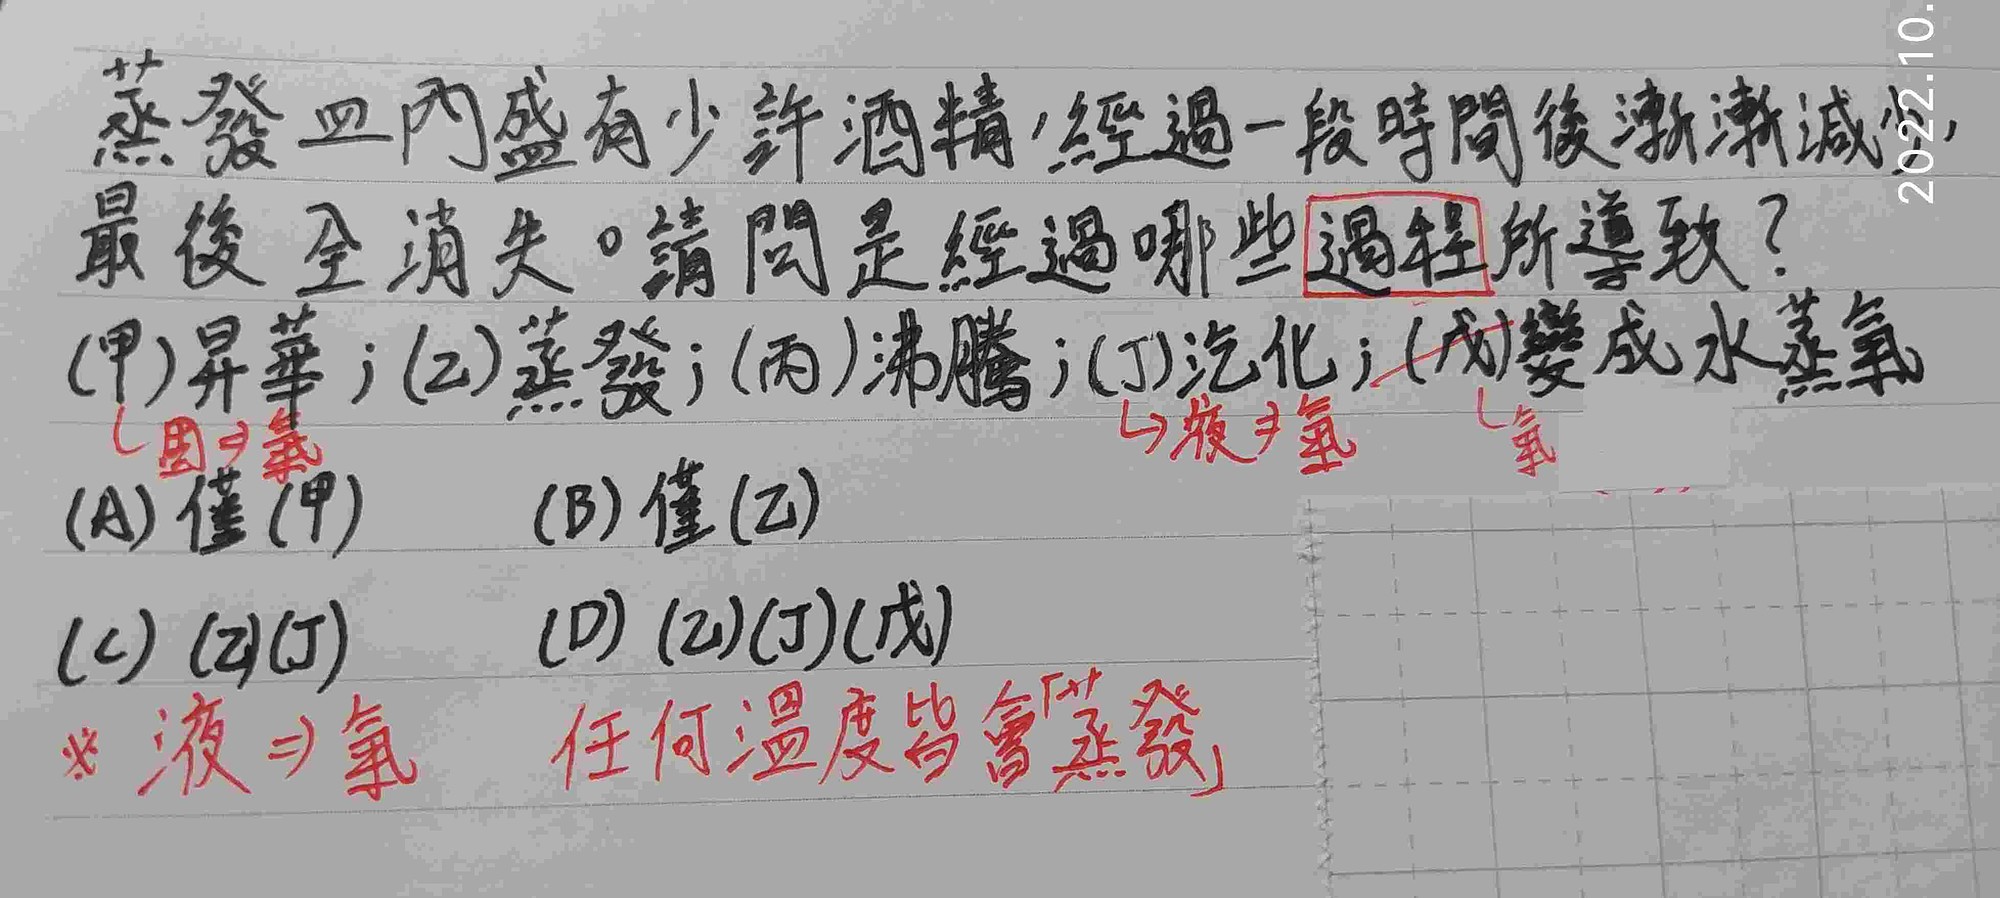 蒸發皿內盛有少許酒精,經過一段時間後漸漸減少,
最後全消失。請問是經過哪些過程所導致?
(甲)昇華;(乙)蒸發;(丙)沸騰;(丁)汽化;(戊)變成水蒸氣
↳固⇒氣 ↳液⇒氣 ↳氣
(A)僅(甲) (B)僅(乙)
(C)(乙)(丁) (D)(乙)(丁)(戊)
※液⇒氣 任何溫度皆會「蒸發」
2022.10.